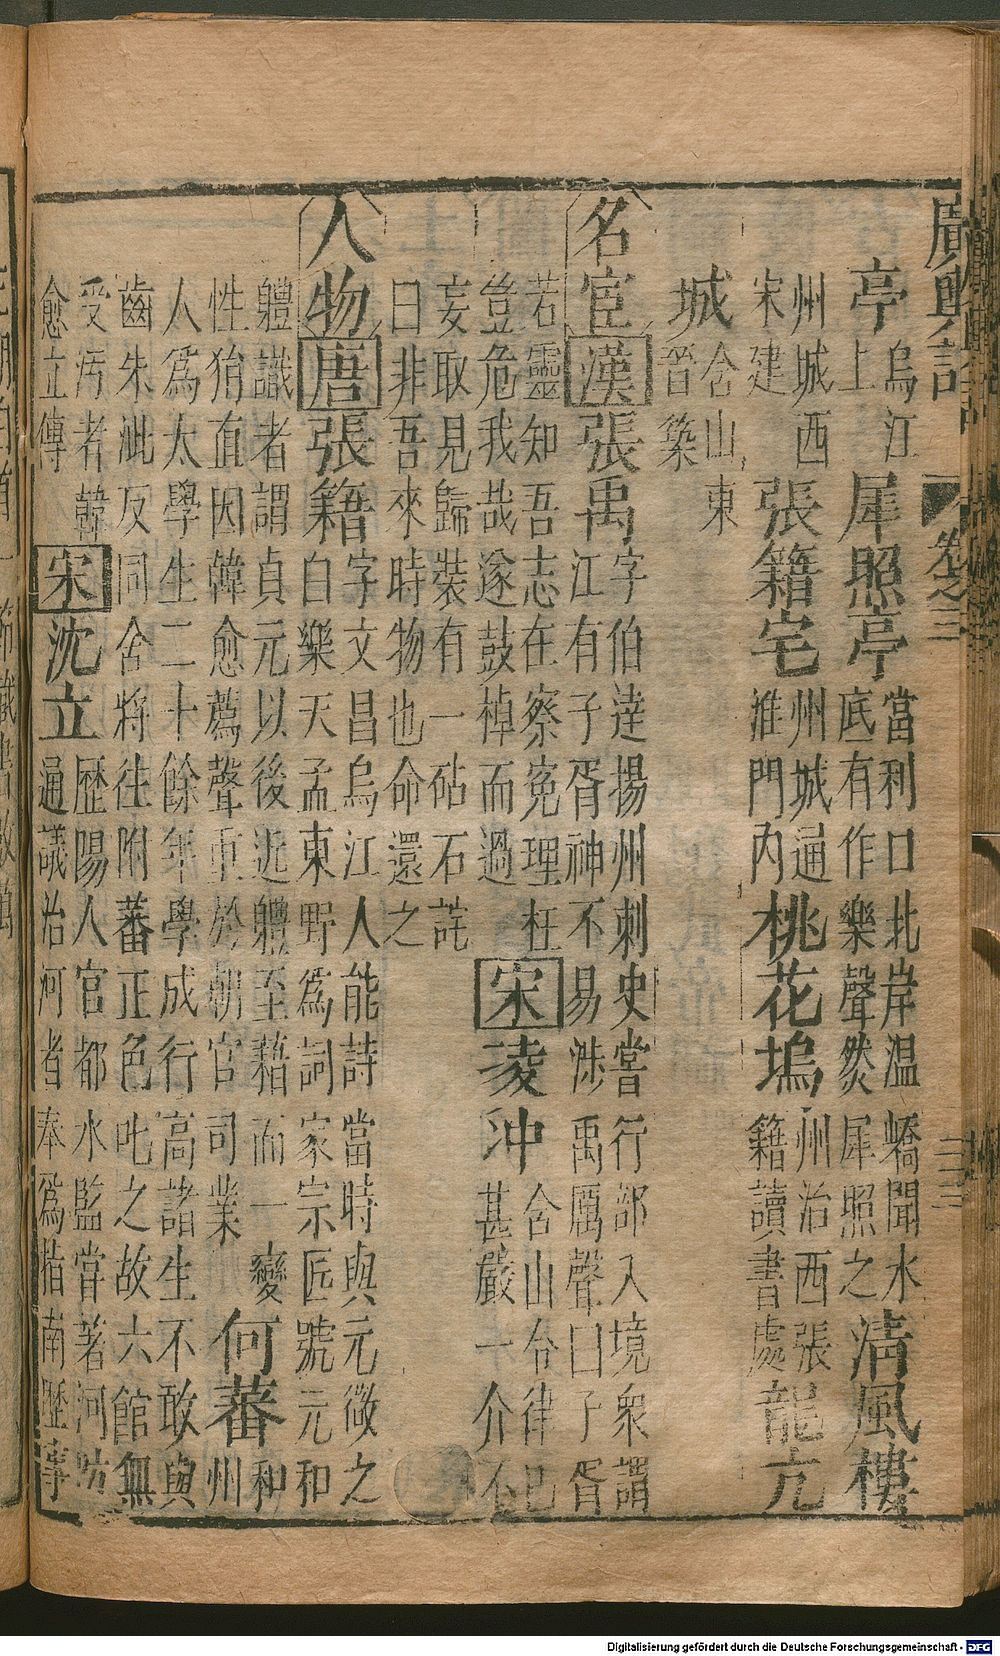 廣輿記 卷之三 二三
亭烏江上犀照亭當利口北岸温嶠聞水底有作樂聲然犀照之清風樓
州城西宋建張籍宅州城通淮門内桃花塢州治西張籍讀書處龍亢
城含山東晉築
名宦漢張禹字伯達揚州刺史嘗行部入境衆謂江有子胥神不易涉禹厲聲曰子胥
若靈知吾志在察寃理枉豈危我哉遂鼓棹而過宋凌冲含山令律己甚嚴一介不
妄取見歸裝有一砧石詫曰非吾來時物也命還之
人物唐張籍字文昌烏江人能詩當時與元微之白樂天孟東野爲詞家宗匠號元和
軆識者謂貞元以後近軆至藉而一變性狷直因韓愈薦聲重於朝官司業何蕃和州
人爲太學生二十餘年學成行高諸生不敢與齒朱泚反同舍將往附蕃正色叱之故六館無
受汚者韓愈立傳宋沈立歷陽人官都水監嘗著河防通議治河者奉爲指南歷事
Digitalisierung gefördert durch die Deutsche Forschungsgemeinschaft - DFG